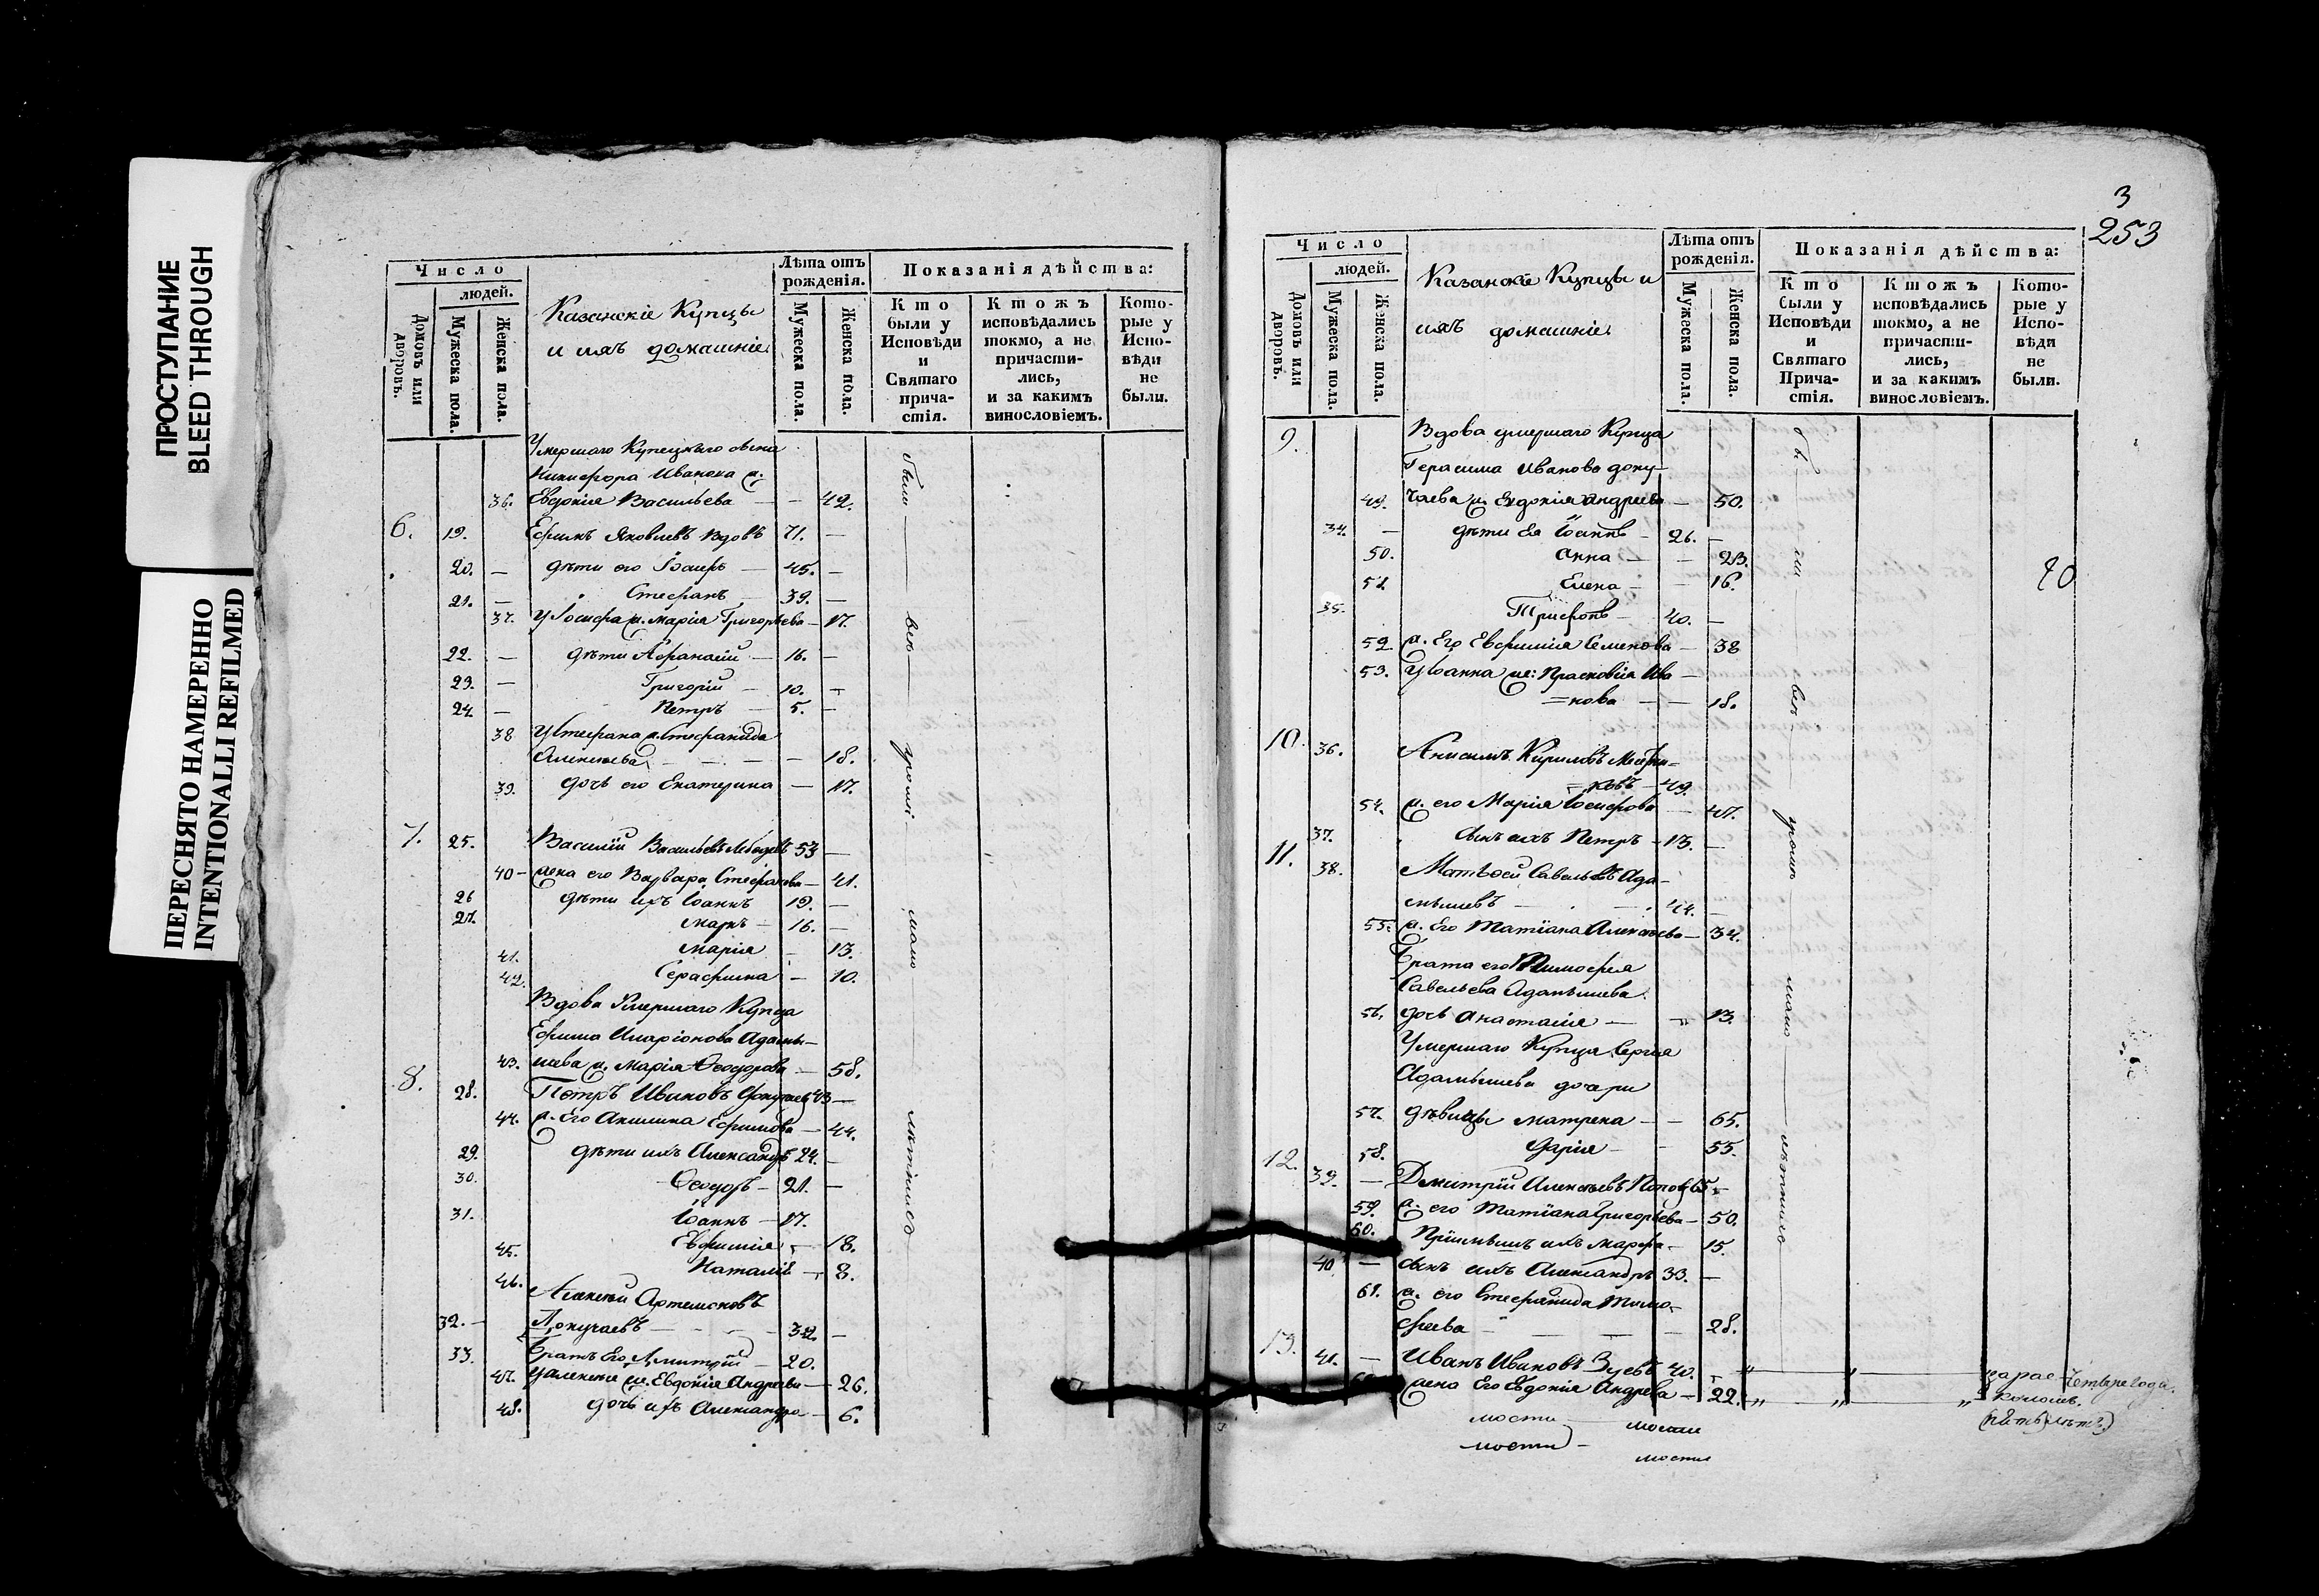 ПРОСТУПАНИЕ
BLEED THROUGH
ПЕРЕСНЯТО НАМЕРЕННО
INTENTIONALLI REFILMED
Число
людей.
Домовъ или дворовъ.
Мужеска пола.
Женска пола.
Казанскіе Купцы
и ихъ домашніе
Лѣта отъ рожденія.
Мужеска пола.
Женска пола.
Показанія дѣйства:
Кто были у Исповѣди и Святаго причастія.
Ктожъ исповѣдались токмо, а не причастились, и за какимъ винословіемъ.
Которые у Исповѣди не были.
Умершаго Купецкаго сына
Никифора Иванова ж.
36. Евдокія Васильева — — 42.
6. 19. Ефимъ Яковлевъ вдовъ 71. —
20. — дѣти его Іосифъ — 45. —
21. — Стефанъ — 39. —
37. У Іосифа ж. Марія Григорьева — 17.
22. — дѣти Афанасій — 16. —
23. — Григорій — 10. —
24. — Петръ — 5. —
38 У Стефана ж. Стефанида
Алексѣева — — — 18.
39. дочь его Екатерина — 17.
7. 25. Василій Васильевъ 53 —
40 — жена его Варвара Стефанова — 41.
26 дѣти ихъ Іоаннъ 19. —
27. Маркъ — 16. —
41. Марія — 13.
42. Серафима — 10.
Вдова умершаго Купца
Ефима Иларіонова Адамы-
43. шева ж. Марія Ѳеодорова — 58.
8. 28. Петръ Ивановъ 43 —
44. ж. Его Акилина Ефимова — 44.
29. дѣти ихъ Александръ 24. —
30. Ѳеодоръ — 21. —
31. Іоаннъ — 17.
45. Евфимія — 18.
46. Наталія — 8.
Алексѣй Артемоновъ
32. — Докучаевъ — — — 32. —
33. Братъ Его Дмитрій — 20.
47. У Алексѣя ж. Евдокія Андреева — 26.
48. дочь ихъ Александра — 6.
были всѣ
3
253
Число
людей.
Домовъ или дворовъ.
Мужеска пола.
Женска пола.
Казанскіе Купцы и
ихъ домашніе
Лѣта отъ рожденія.
Мужеска пола.
Женска пола.
Показанія дѣйства:
Кто были у Исповѣди и Святаго Причастія.
Ктожъ исповѣдались токмо, а не причастились, и за какимъ винословіемъ.
Которые у Исповѣди не были.
9. Вдова умершаго Купца
Герасима Иванова Доку-
49. чаева ж. Евдокія Андреева — 50.
34. — дѣти Ея Іоаннъ — 26. —
50. Анна — — 23.
51 Елена — — 16.
35. Трифонъ — 40. —
52 ж. Его Евфимія Семенова — 38
53. У Іоанна же: Прасковія Ива —
=нова — — 18.
10. 36. Анисимъ Кириловъ
=ковъ — 49.
54. ж. его Марія Іосифова — 47.
37. сынъ ихъ Петръ — 13. —
11. 38. Матвѣй Савельевъ Ада-
мышевъ — 44. —
55. ж. Его Татіана Алексѣева — 34.
Брата его Тимофея
Савельева Адамышева
56. дочь Анастасія — „ 13.
Умершаго Купца Сергія
Адамышева дочери
57. дѣвицы Матрена — — 65.
58. Дарія — — 55.
12. 39. — Дмитрій Алексѣевъ Поповъ 65 —
59. ж. его Татіана Григорьева — 50.
60. Пріемышъ ихъ Марфа — 15.
40 — сынъ ихъ Александръ 33. —
61. ж. его Стефанида Тимо-
феева — — — 28.
13. 41. — Иванъ Ивановъ Зуевъ 40. —
жена Его Евдокія Андреева — 22.
20